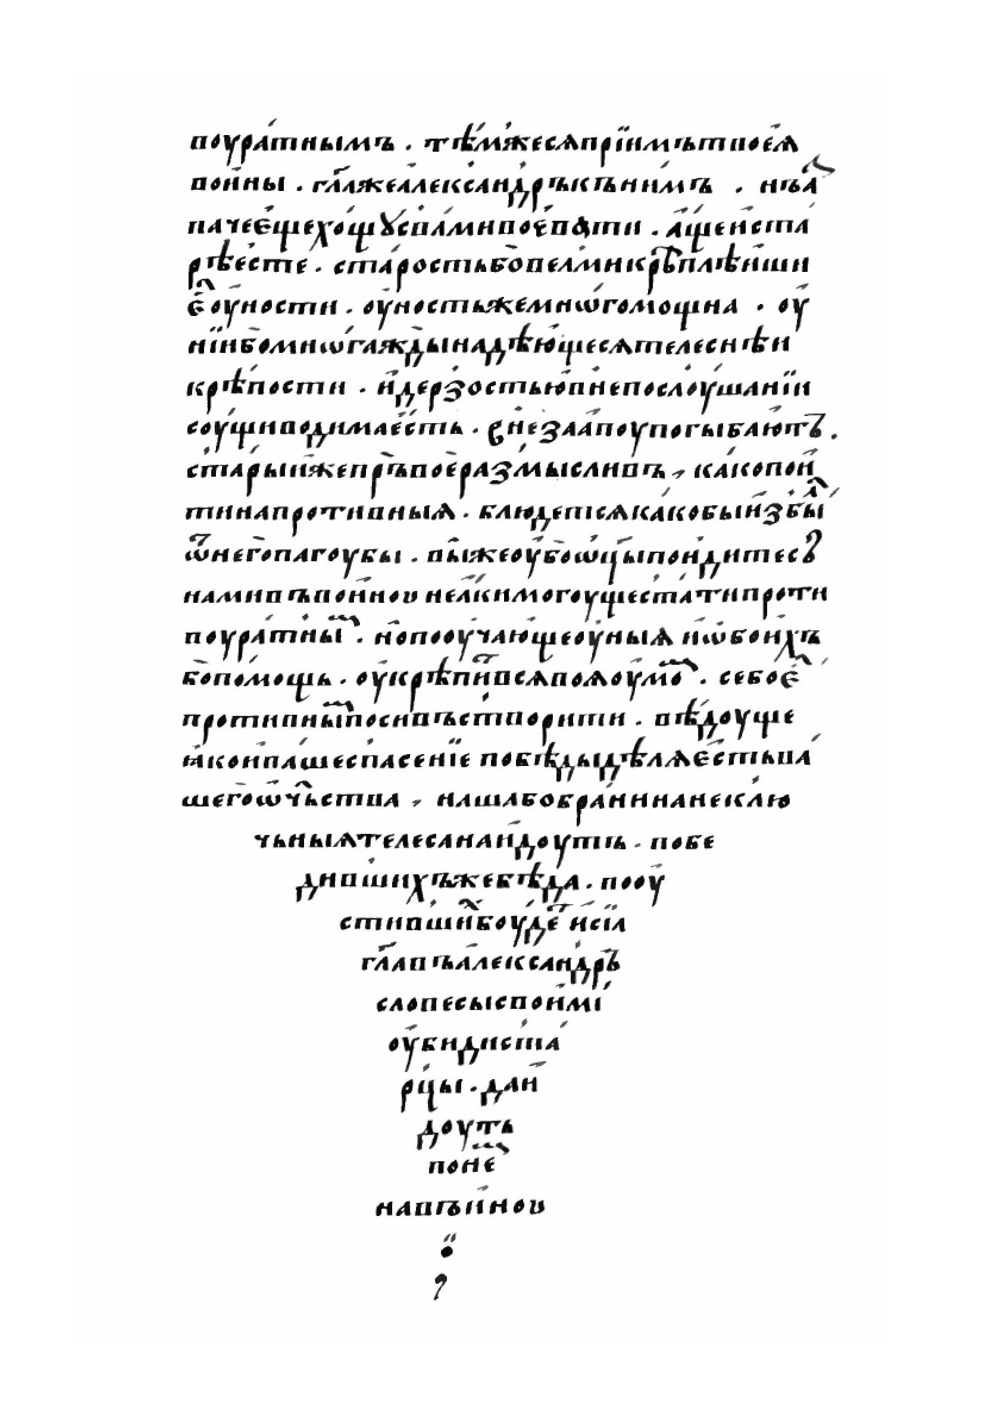 поура́тнымъ . тѣ́мже сѧ прїи́мъ твоеѧ̀
во́ины . гл҃а же алекса́ндръ къ ни́мъ . нъⷧ҇а
па́че є҆ще хощꙋ̀ с ва́ми воева́ти . а҆́ще и҆ ста́
рѣ є҆стѐ . ста́рость бо̀ велмѝ крѣ́пльши
є҆ⷭ оу҆́ности . оу҆́ность же мнѡ́го мощна̀ . оу҆
нїѝ бо̀ мнѡга́жды надѣ́ющесѧ телеснѣи
крѣ́пости . и҆ де́рзостью в непослоу́шанїи
соу́щи води́ма є҆́сть . внеза́апоу погыба́ютъ .
ста́рыи же пръвоѐ размы́сливъ , ка́ко пои
ти на проти́вныѧ . блюде́тсѧ ка́ко бы и҆збыⷧ
ѿ него̀ па́гоубы . вы́ же оу҆̀бо ѻ҆тцы̀ пои́дите съ
на́ми въ во́иноу не ꙗ҆́ки могоуще ста́ти проти
воура́тныⷨ . но̀ пооуча́юще оу҆́ныѧ и҆ ѡ҆бои́хъ
бо̀ по́мощь . оу҆крѣпи́вⷭсѧ воѧ оу҆мо́ⷨ . себо̀ є҆ⷭ
проти́вныⷨ поси́въ створи́ти . вѣ́доуще
ꙗ҆́ко и҆ ва́ше спасе́нїе побѣ́ды дѣ́лѧ є҆́сть ва́
шего̀ ѿч҃ьства , на́ша бо бра́ни на неклю́
чьныѧ телеса̀ наи́доутъ . побе
ди́вшихъ же бѣ́да . пооу
сти́вшиⷯ боу́деⷮ и҆ сїѧ
гл҃авъ алекса́ндръ
словесы̀ свои́мі
оу҆бѝди ста́
рцы . да и҆́
доуть
по неⷨ
на въи́ноу